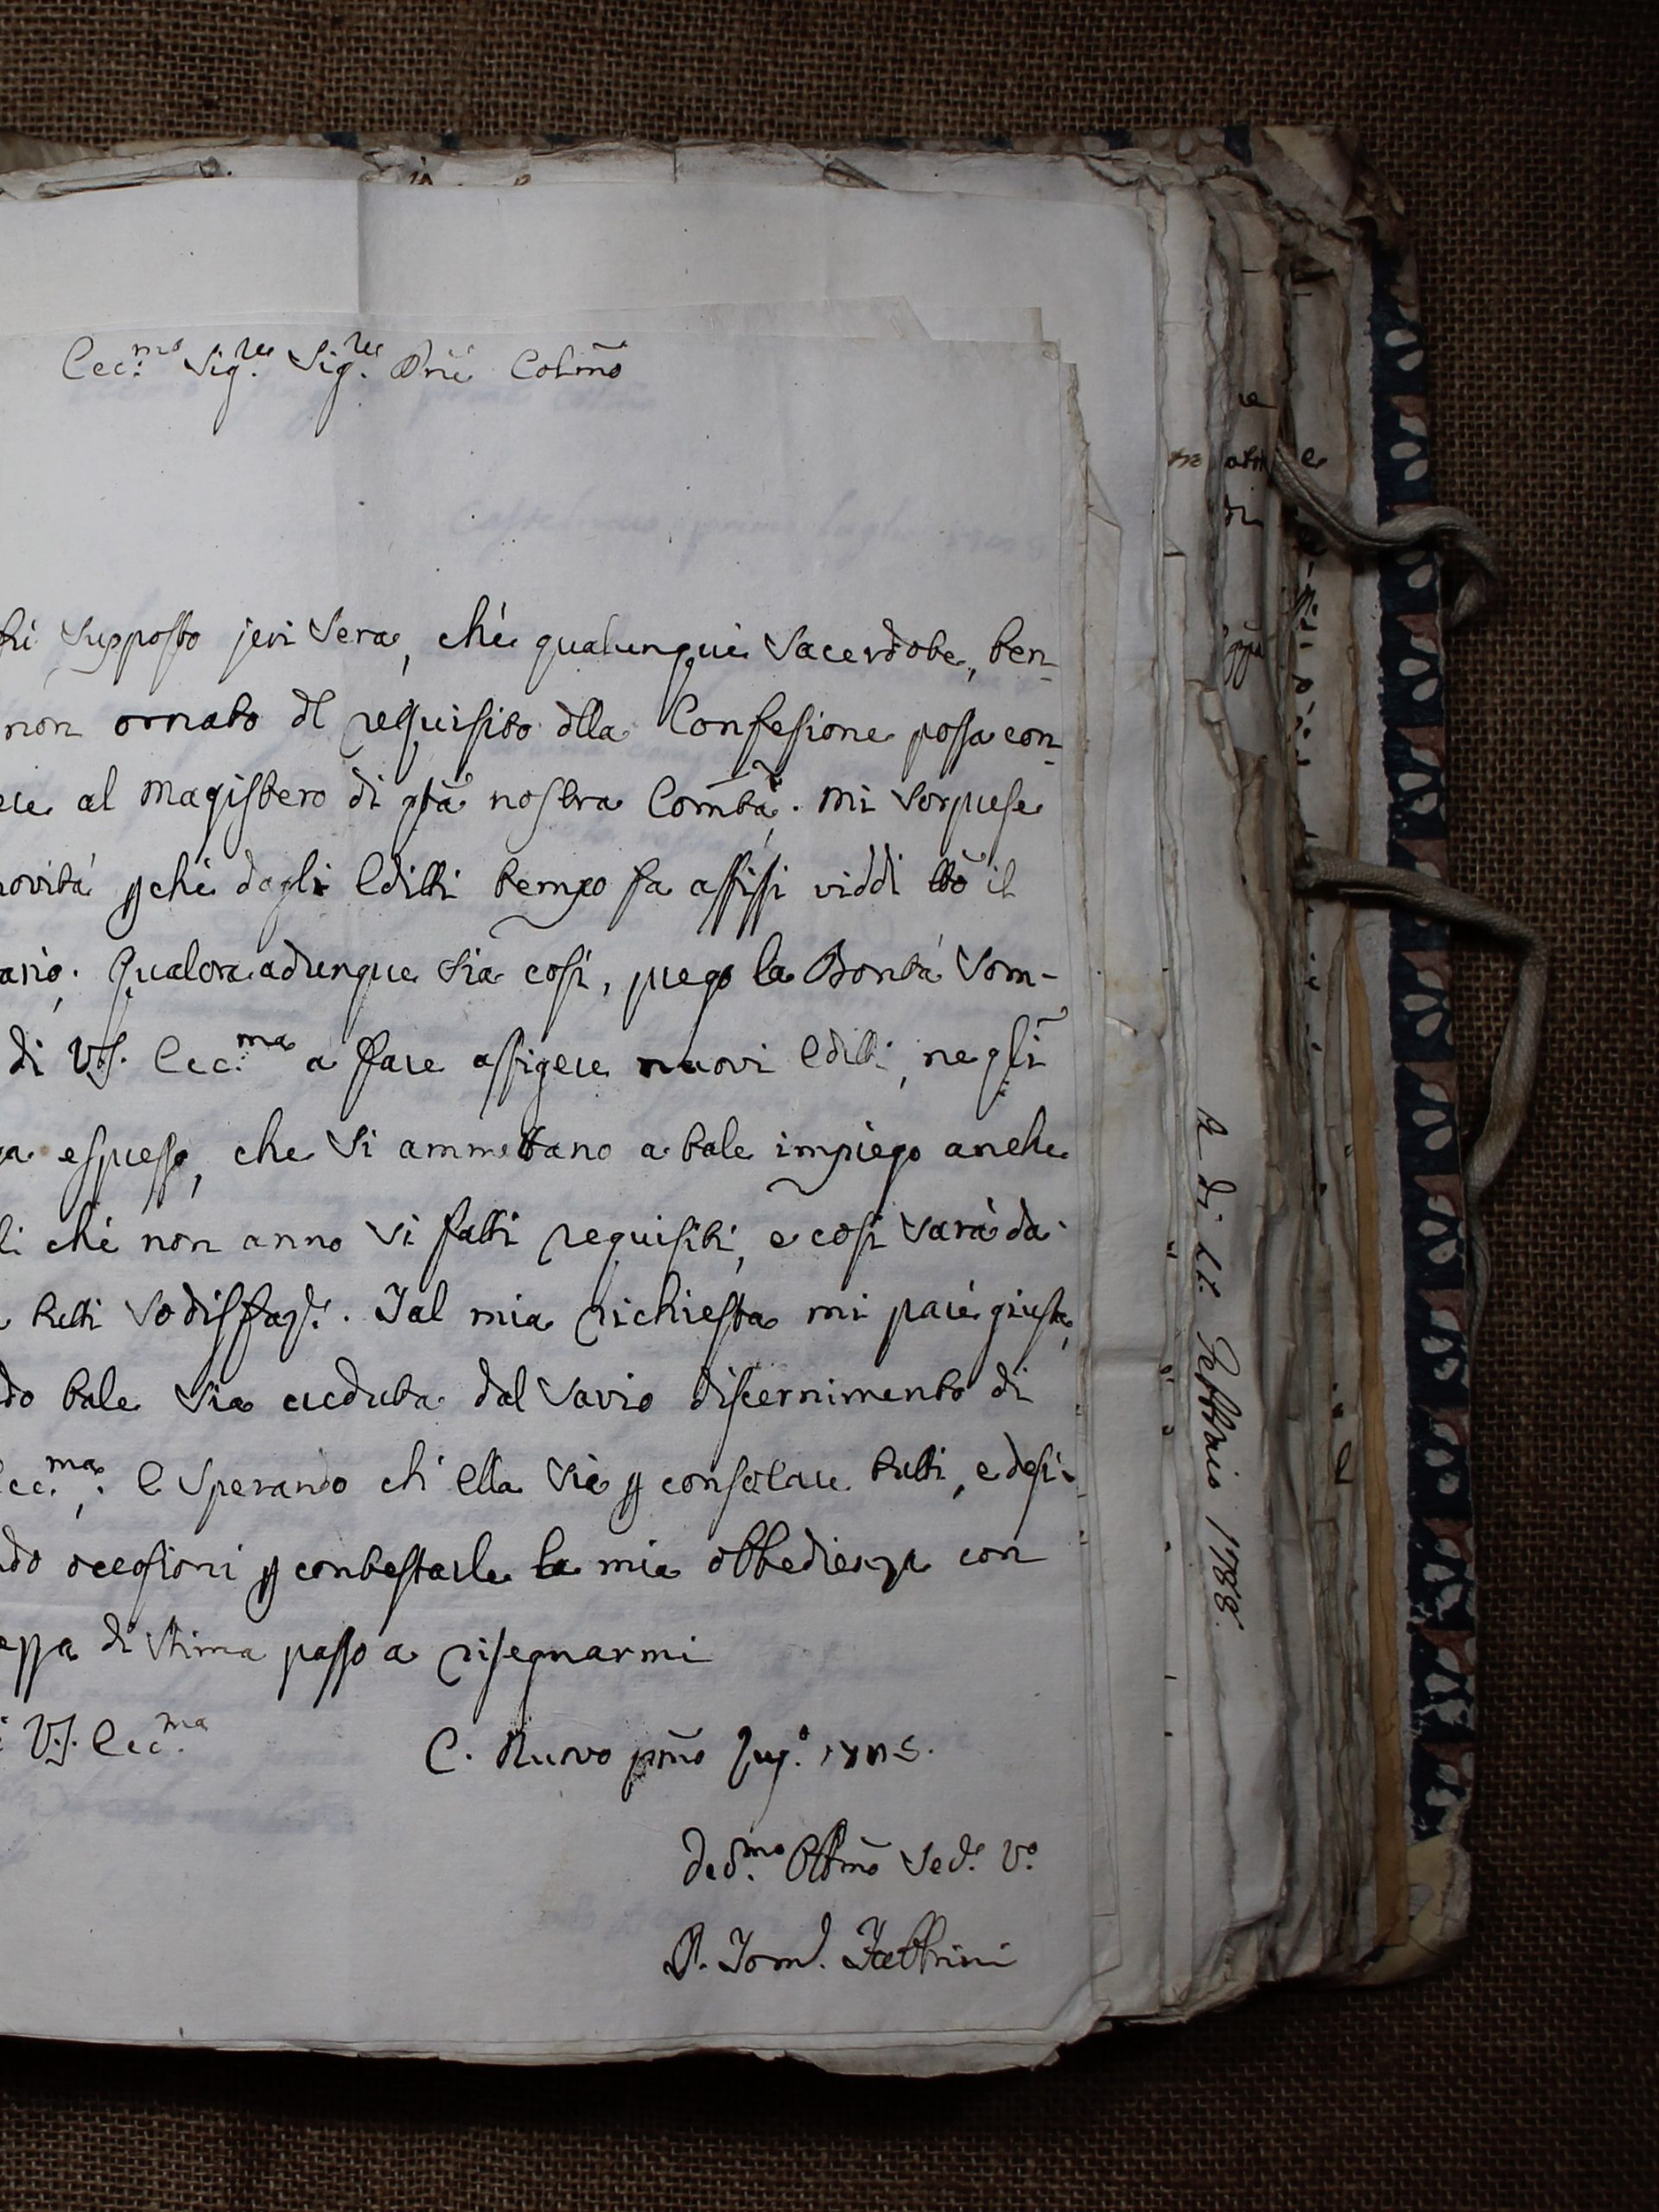 Ecc.mo Sig.re Sig.re Prñe Colmõ
supposto jeri sera, che qualunque Sacerdote, ben-
non ornato dl requisito dlla Confesione possa con-
al Magistero di qta nostra Comtà. Mi sorprese
novità pche dagli Editti tempo fa affissi viddi tto il
ario. Qualora adunque sia così, prego la Bontà Som-
di V.S. Ecc.ma a fare affigere nuovi Editti, negli
espresso, che si ammettano a tale impiego anche
che non anno si fatti requisiti, e così sarà da
tutti sodisfaq.e. Tal mia richiesta mi pare giusta,
do tale sia creduta dal savio discernimento di
Ecc.ma. E sperando ch'ella sia p consolare tutti, e desi-
do occasioni p contestarle la mia obbedienza con
ezza di stima passo a risegnarmi
V.S. Ecc.ma
C. Nuovo pmo
Ded.mo Obbmo Ser.e V.o
D. Tom.o Fabbrini
A di 21. Febbraio 1788.